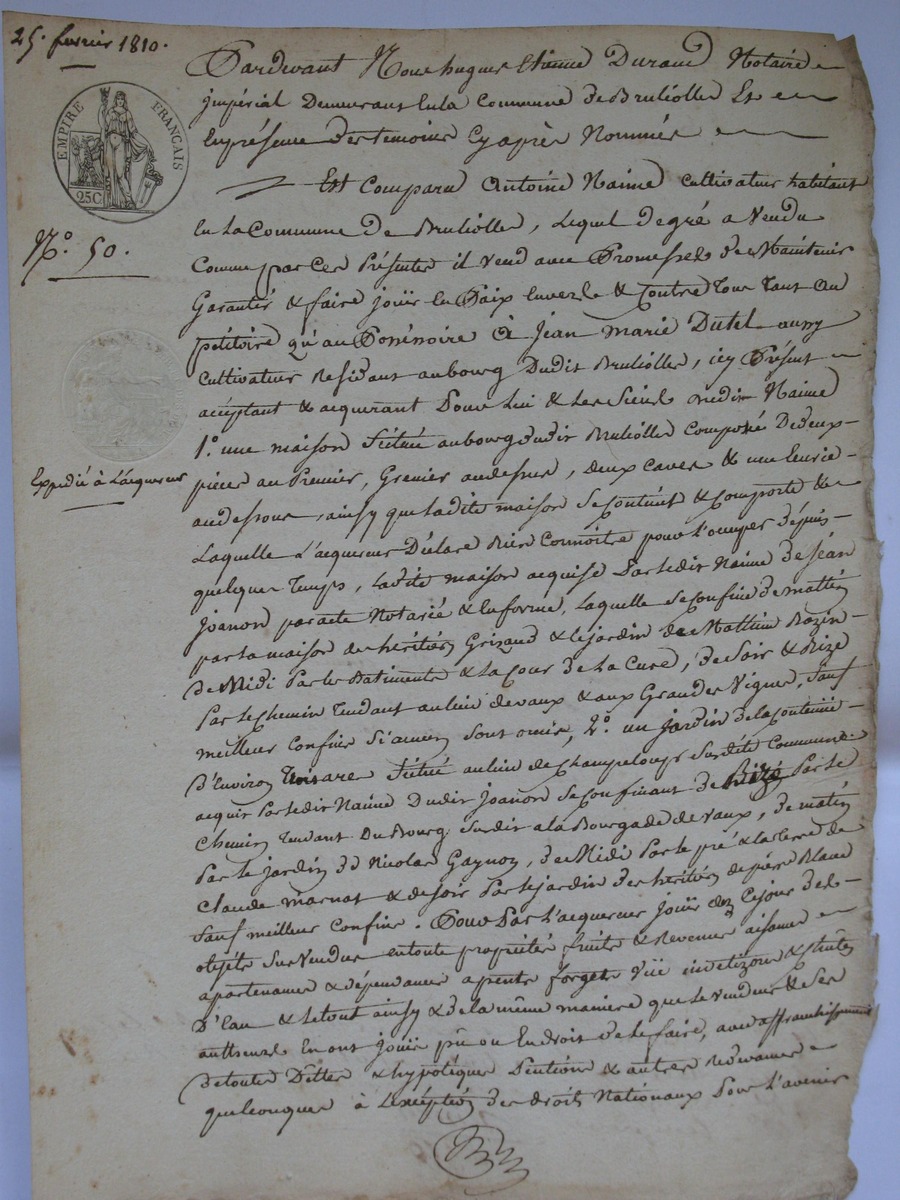 25. fevrier 1810.
EMPIRE FRANÇAIS
25C
N.° 50.
Expedié à L'acquereur
Pardevant Nous hugues Etienne Durand Notaire
impérial Demeurant En la Commune de Brullioles Et
En présence des temoins Cy après Nommés
Est Comparu Antoine Naime Cultivateur habitant
En La Commune De Brullioles, Lequel de gré a Vendu
Comme par Ces Présentes il Vend avec Promesse de Maintenir
Garantir & faire jouir En Paix Envers & Contre Tous Tant au
petitoire qu'au Possessoire à Jean marie Dutel aussy
Cultivateur Residant au bourg Dudit Brullioles, icy Présent
acéptant & acquerant Pour Lui & Les Siens dudit Naime
1.° une maison Située au bourg dudit Brullioles Composé De deux
pièces au Premier, Grenier au dessus, deux caves & une Ecurie
au dessous, ainsy que Ladite maison Se Contient & Comporte &
Laquelle L'acquereur Déclare Bien Connoitre pour L'occuper depuis
quelque Temps, Ladite maison acquise Par Ledit Naime de Jean
Joanon par acte Notarié & En forme, Laquelle Se Confine De matin
par La maison des héritiers Grizaud & Le jardin de Mathieu Bazin
De Midi Par les Batiments & La Cour de La Cure, de Soir & Bize
Par Le Chemin Tendant au lieu de vaux & aux Grandes Vignes, Sauf
meilleurs Confins Si aucuns Sont omis, 2.° un jardin De la Contenue
D'Environ trois ares Situé au lieu de champeloup Surdite Commune
acquis Par Ledit Naime Dudit Joanon Se Confinant de Bize Par Le
Chemin Tendant Du Bourg Susdit a la Bourgade de Vaux, de matin
Par Le jardin de Nicolas Gaynon, de Midi Par Le pré & La terre de
Claude marnat & de Soir Par Le jardin des héritiers de pierre Blanc
Sauf meilleurs Confins. Pour Par L'acquereur Jouir dez Ce jour des
objéts Sus Vendus en toute propriété fruits & Revenus aisances
apartenances & dépendances
D'Eau & Le tout ainsy & de la même manière que Le Vendeur & Ses
autheurs En ont Jouïr pû ou En droit de Le faire, avec affranchissement
De toutes Dettes & hypotèques Pentions & autres Redevances
quelconques à L'exception des droits Nationaux Pour L'avenir